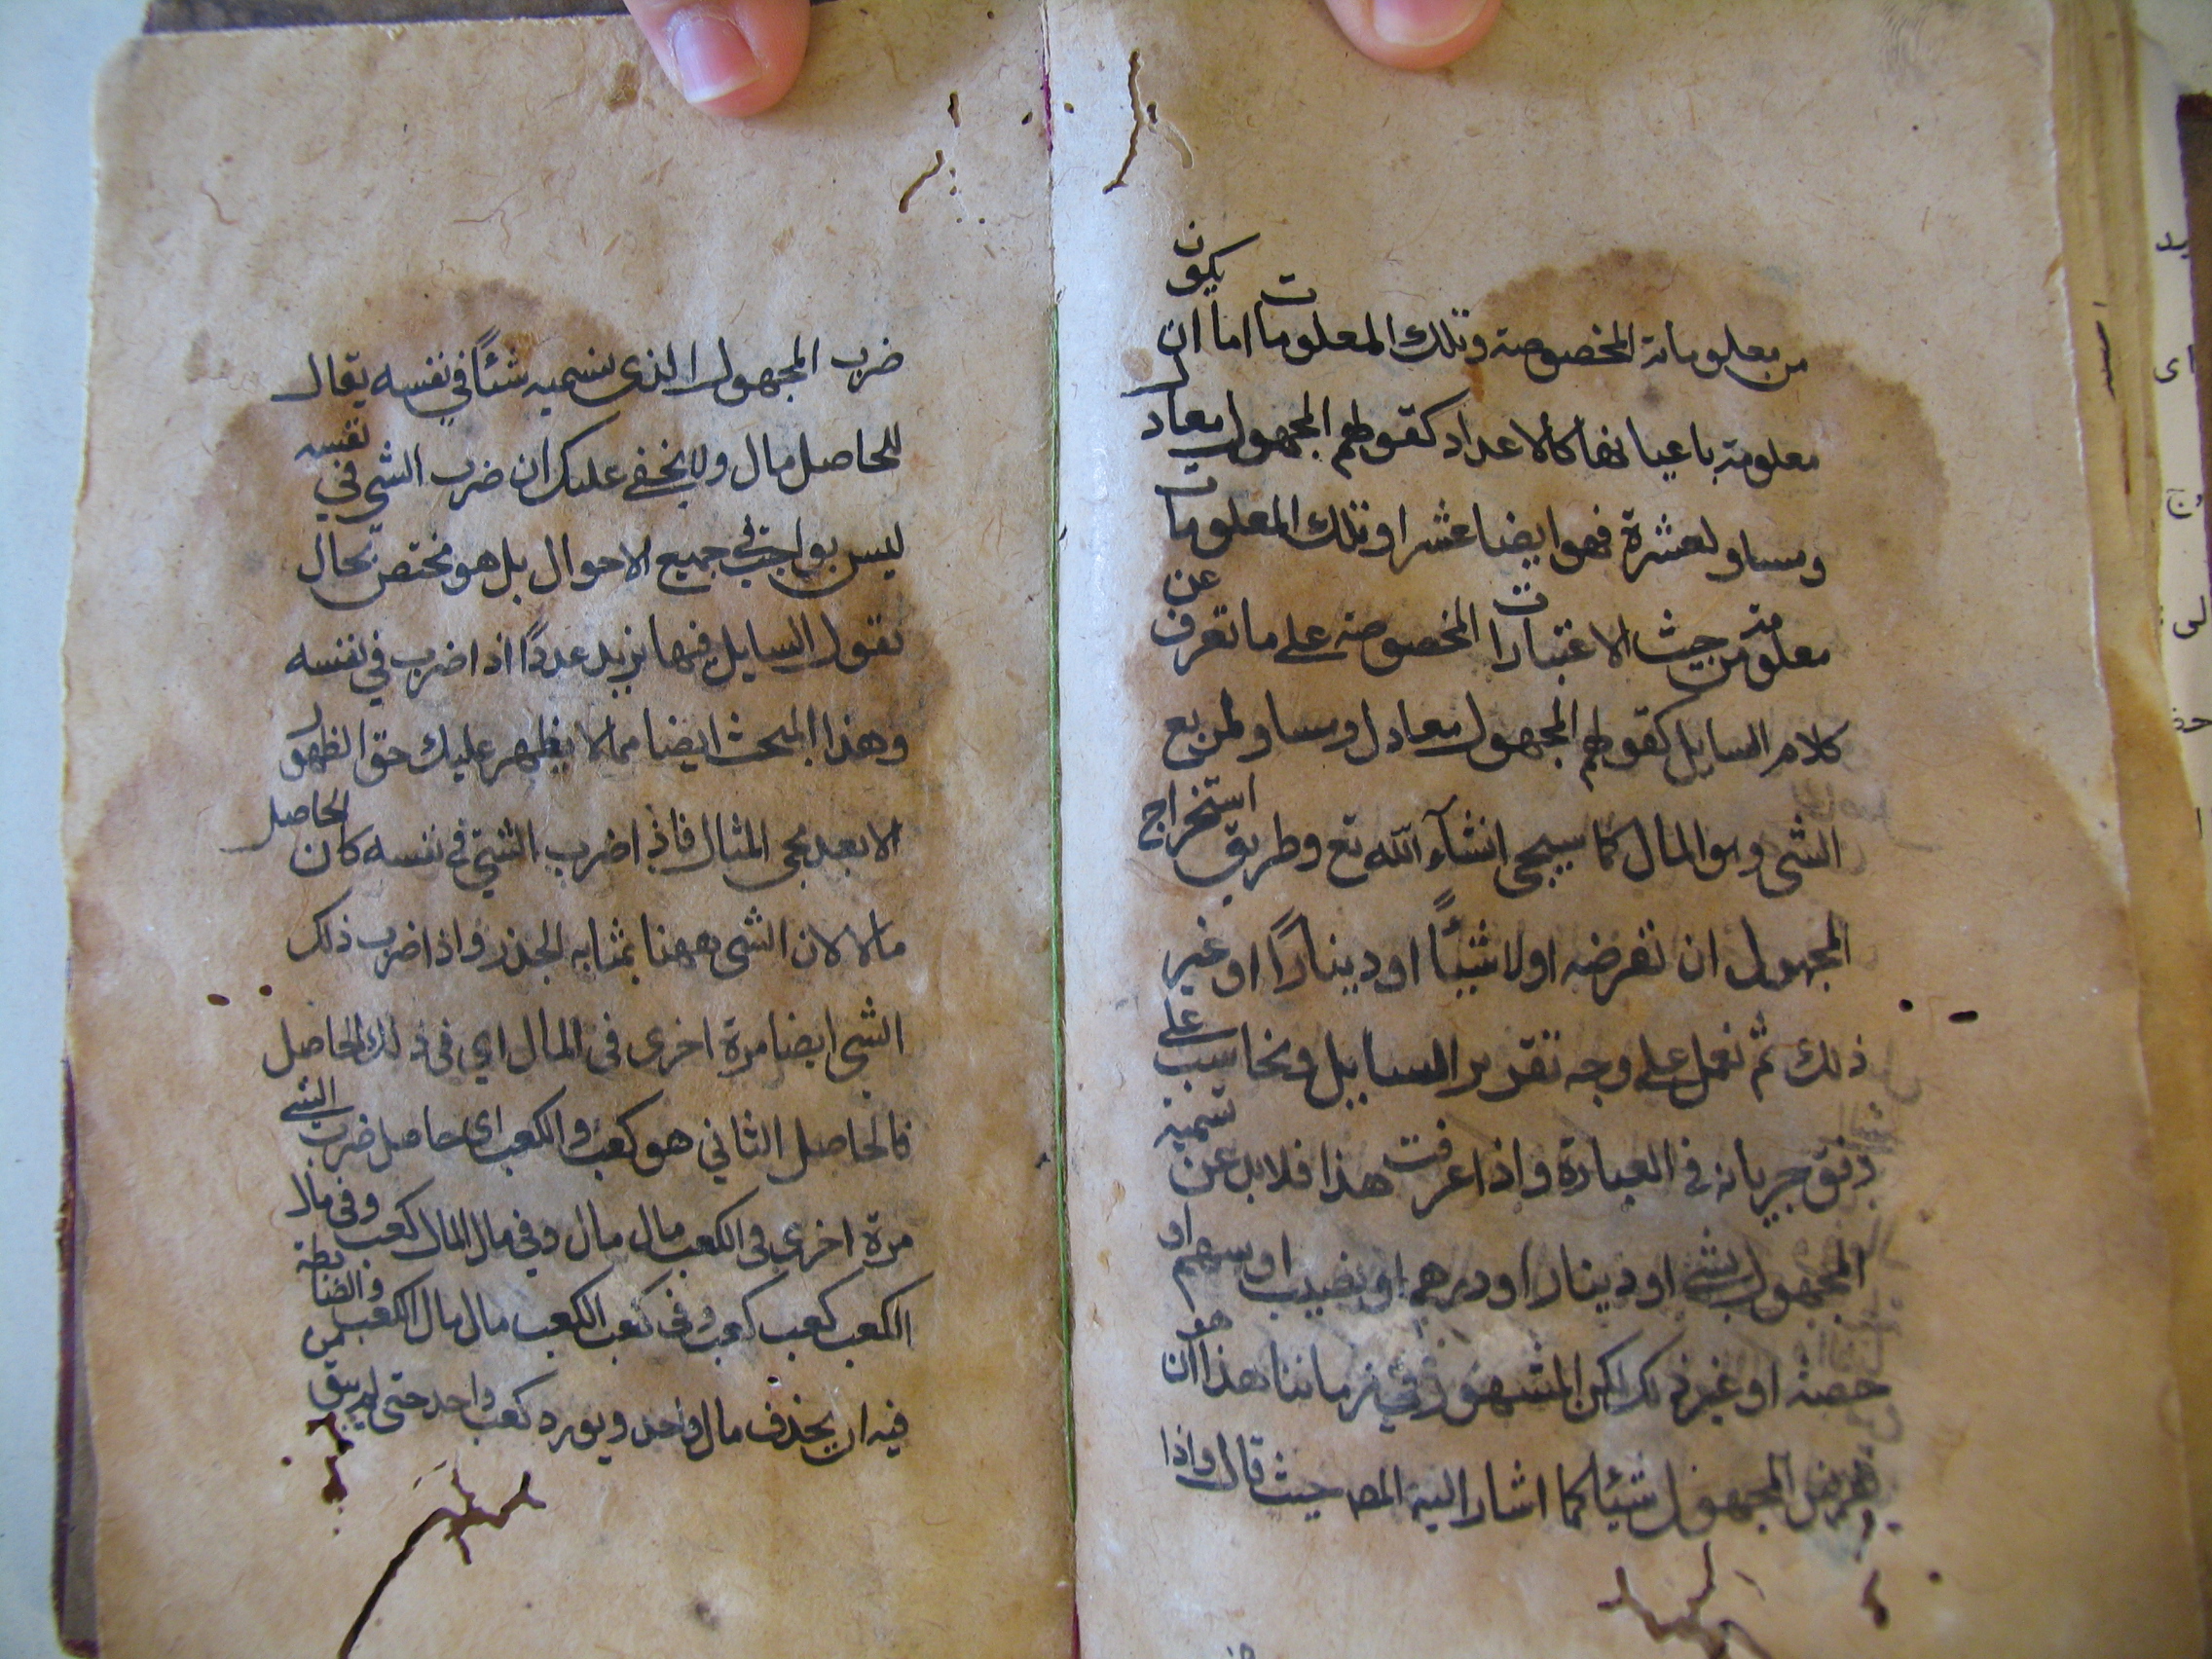 من معلوماته المخصوصة وتلك المعلومات اما ان يكون
معلومة باعيانها كالاعداد كقولهم المجهول معادل
ومساو لعشرة فهو ايضا عشر او تلك المعلومات
معلومة من حيث الاعتبارات المخصوصة على ما تعرف عن
كلام السايل كقولهم المجهول معادل ومساو لمربع
الشى وهو المال كما سيجى انشآء الله تع وطريق استخراج
المجهول ان تفرضه اولا شيئاً او ديناراً او غير
ذلك ثم تعمل على وجه تقرير السايل وتحاسب على
وفق جريانه فى العبارة واذا عرفت هذا فلا بد عن تسمية
المجهول بشئ او دينار او درهم او نصيب او سهم او
حصة او غير ذلك لكن المشهور فى زماننا هذا هو ان
تفرض المجهول شيئا كما اشار اليه المصـ حيث قال واذا
ضرب المجهول الذى نسميه شئاً في نفسه يقال
للحاصل مال ولا يخفى عليك ان ضرب الشي في نفسه
ليس بواجب فى جميع الاحوال بل هو مختص بحال
تقول السايل فيها نريد عدداً اذا ضرب في نفسه
وهذا المبحث ايضا مما لا يظهر عليك حق الظهور
الا بعد مجى المثال فاذا ضرب الشئ فى نفسه كان الحاصل
مالا لان الشى ههنا بمثابه الجذر واذا ضرب ذلك
الشئ ايضا مرة اخرى فى المال اي فى ذلك الحاصل
فالحاصل الثاني هو كعب والكعب اى حاصل ضرب الشي
مرة اخرى فى الكعب مال مال وفي مال المال كعب وفى مال
الكعب كعب كعب وفى كعب الكعب مال مال الكعب والضابطة
فيه ان يحذف مال واحد ويورد كعب واحد حتى لم يبق